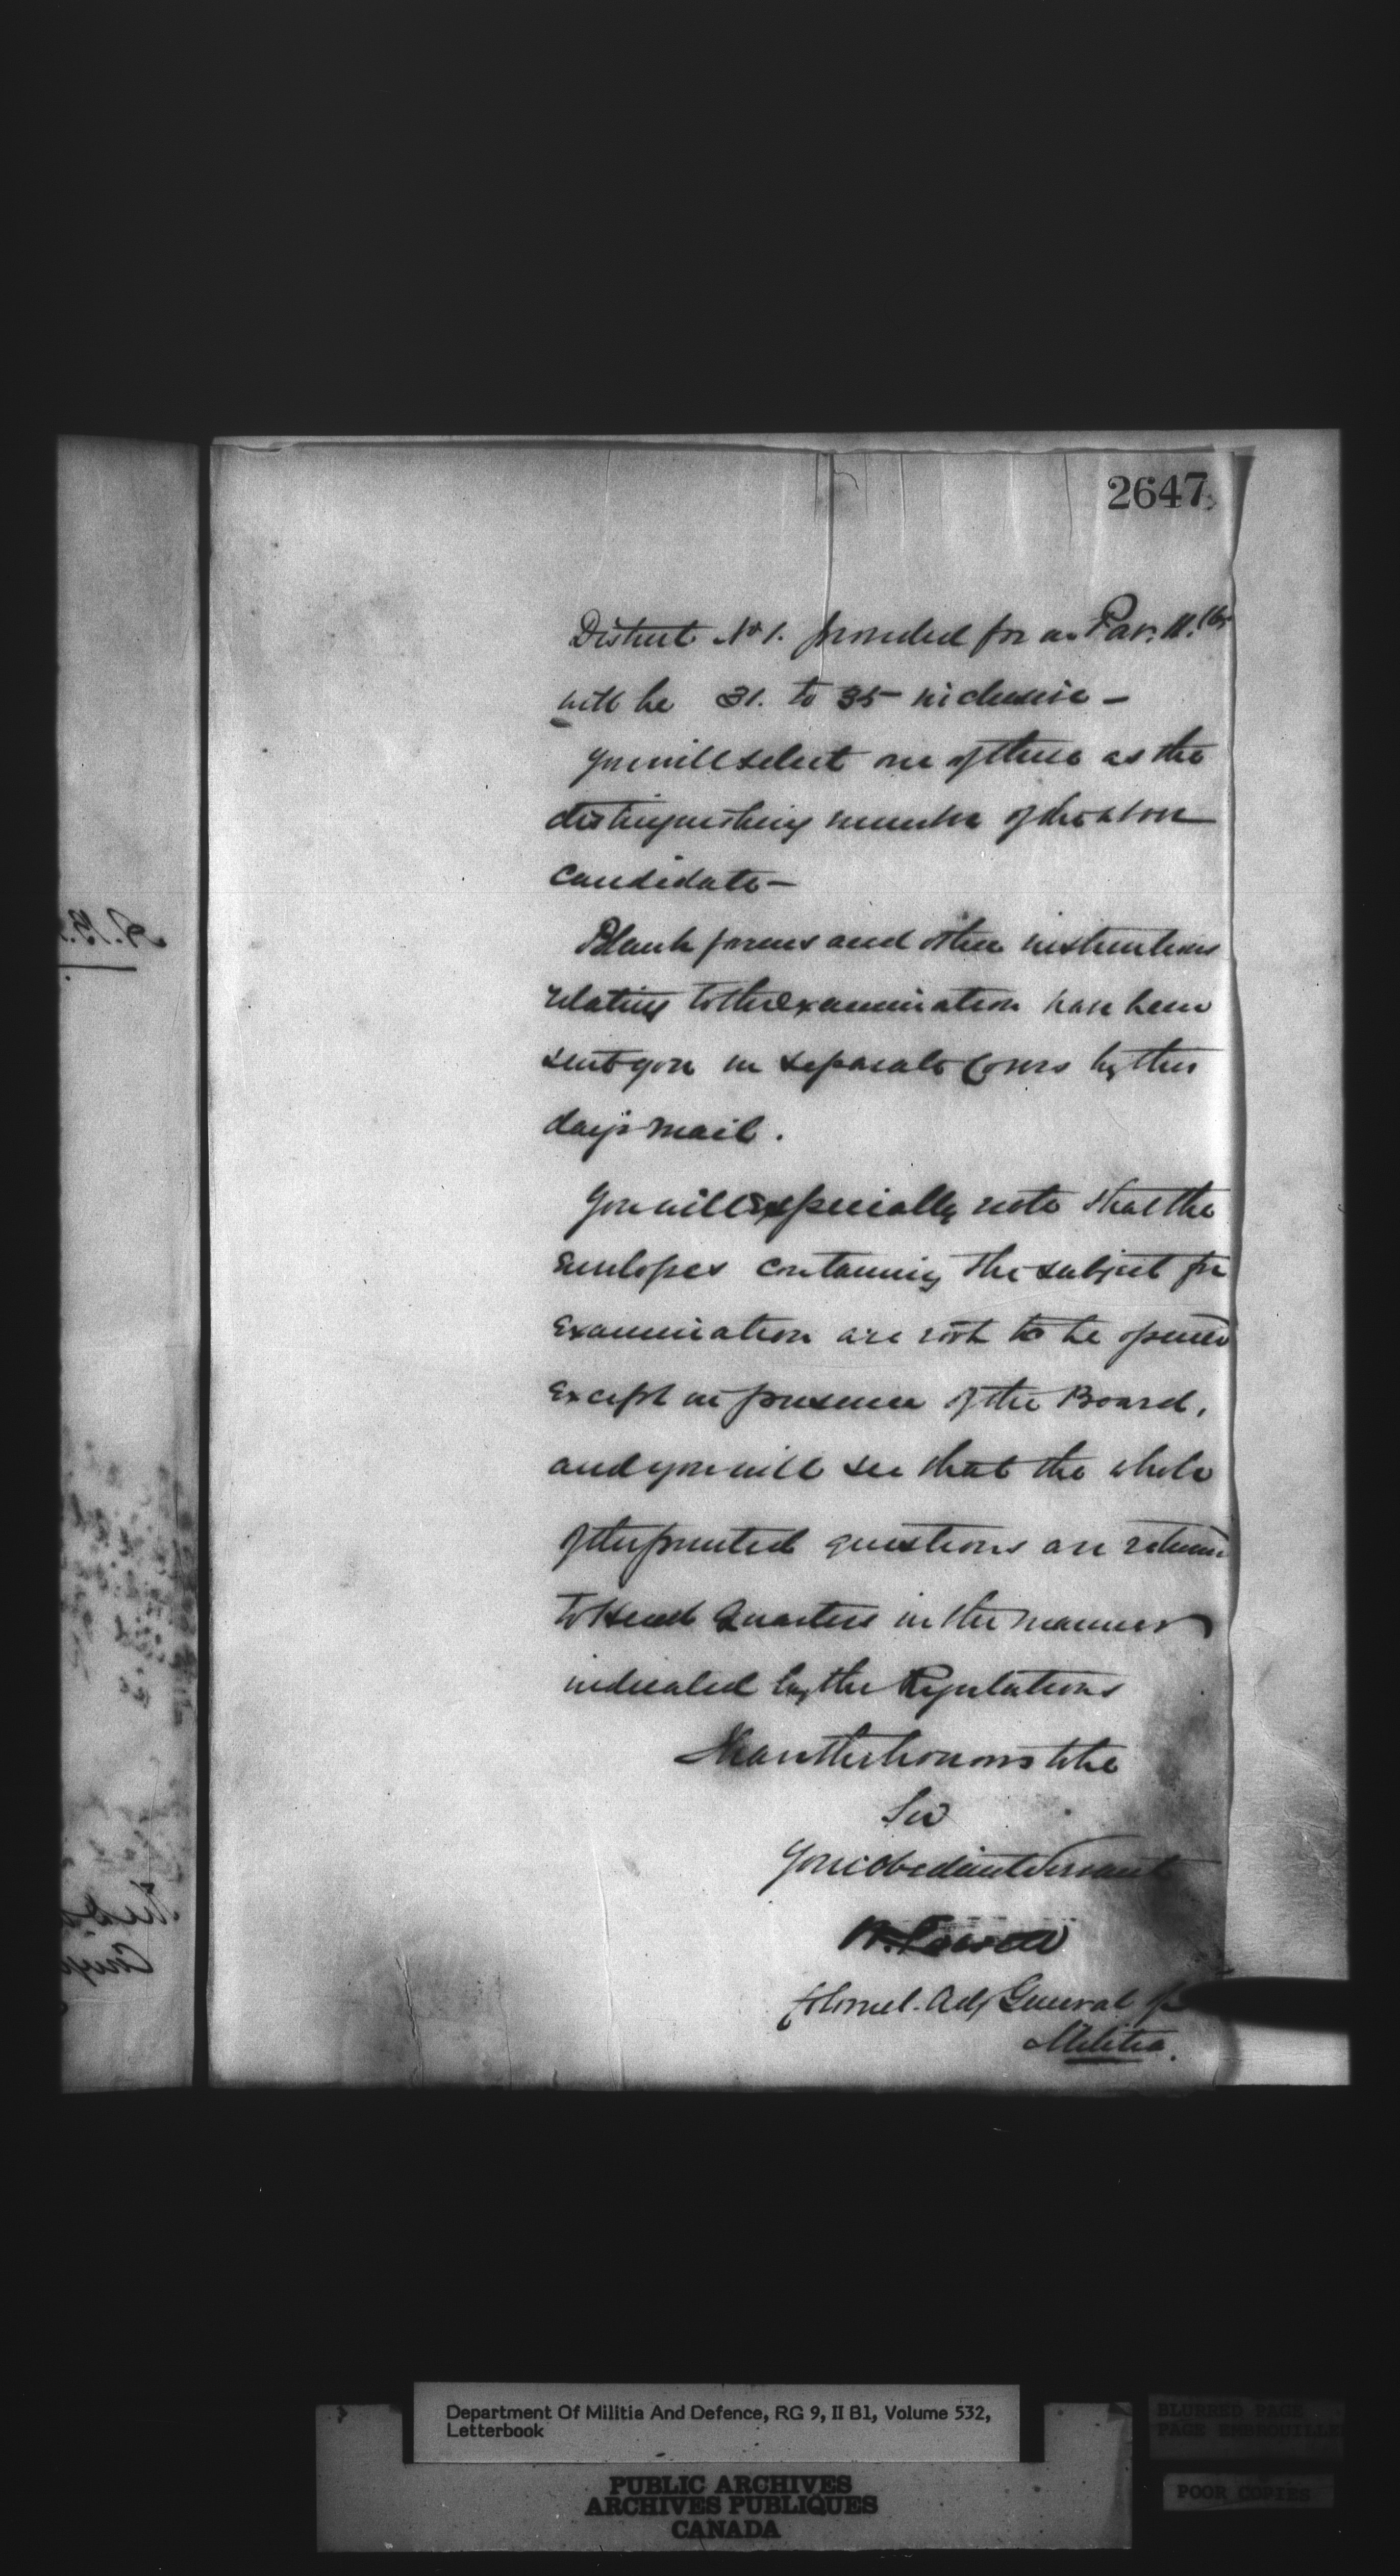 2647
District No 1. provided for in Par. 11.
will be 31. to 35 inclusive —
You will select one of these as the
distinguishing number of the above
Candidate —
Blank forms and other instructions
relating to the Examination have been
sent you in separate Covers by this
day's Mail.
You will Especially note that the
Envelopes containing the subject for
Examination are not to be opened
Except in presence of the Board,
and you will see that the whole
of the printed questions are returned
to Head Quarters in the manner
indicated by the Regulations
I have the honor to be
Sir
Your obedient Servant
W. Powell
Colonel. Adj General of
Militia.
Department Of Militia And Defence, RG 9, II B1, Volume 532,
Letterbook
PUBLIC ARCHIVES
ARCHIVES PUBLIQUES
CANADA
BLURRED PAGE
PAGE EMBROUILLE
POOR COPIES